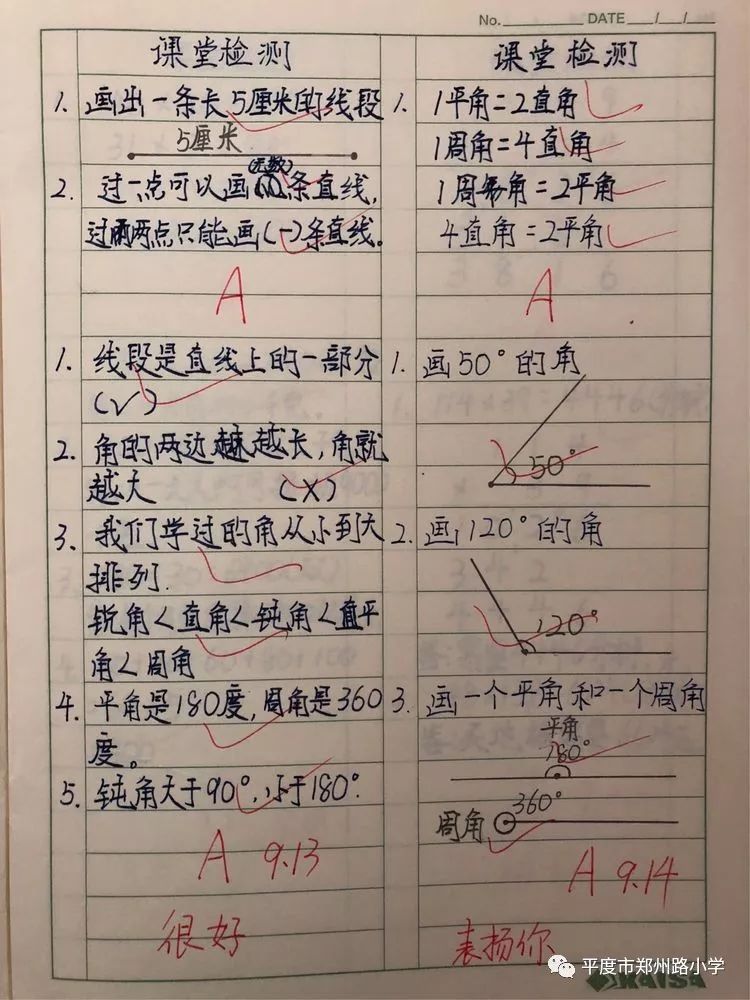 No. DATE / /
课堂检测
1. 画出一条长5厘米的线段
5厘米
(无数)
2. 过一点可以画 条直线,
过两点只能画(一)条直线。
A
1. 线段是直线上的一部分
(√)
2. 角的两边越越长,角就
越大 (×)
3. 我们学过的角从小到大
排列.
锐角<直角<钝角<平
角<周角
4. 平角是180度,周角是360
度。
5. 钝角大于90°,小于180°.
A 9.13
很好
课堂检测
1. 1平角=2直角
1周角=4直角
1周角=2平角
4直角=2平角
A
1. 画50°的角
50°
2. 画120°的角
120°
3. 画一个平角和一个周角
平角
180°
360°
周角
A 9.14
表扬你
平度市郑州路小学
KAISA